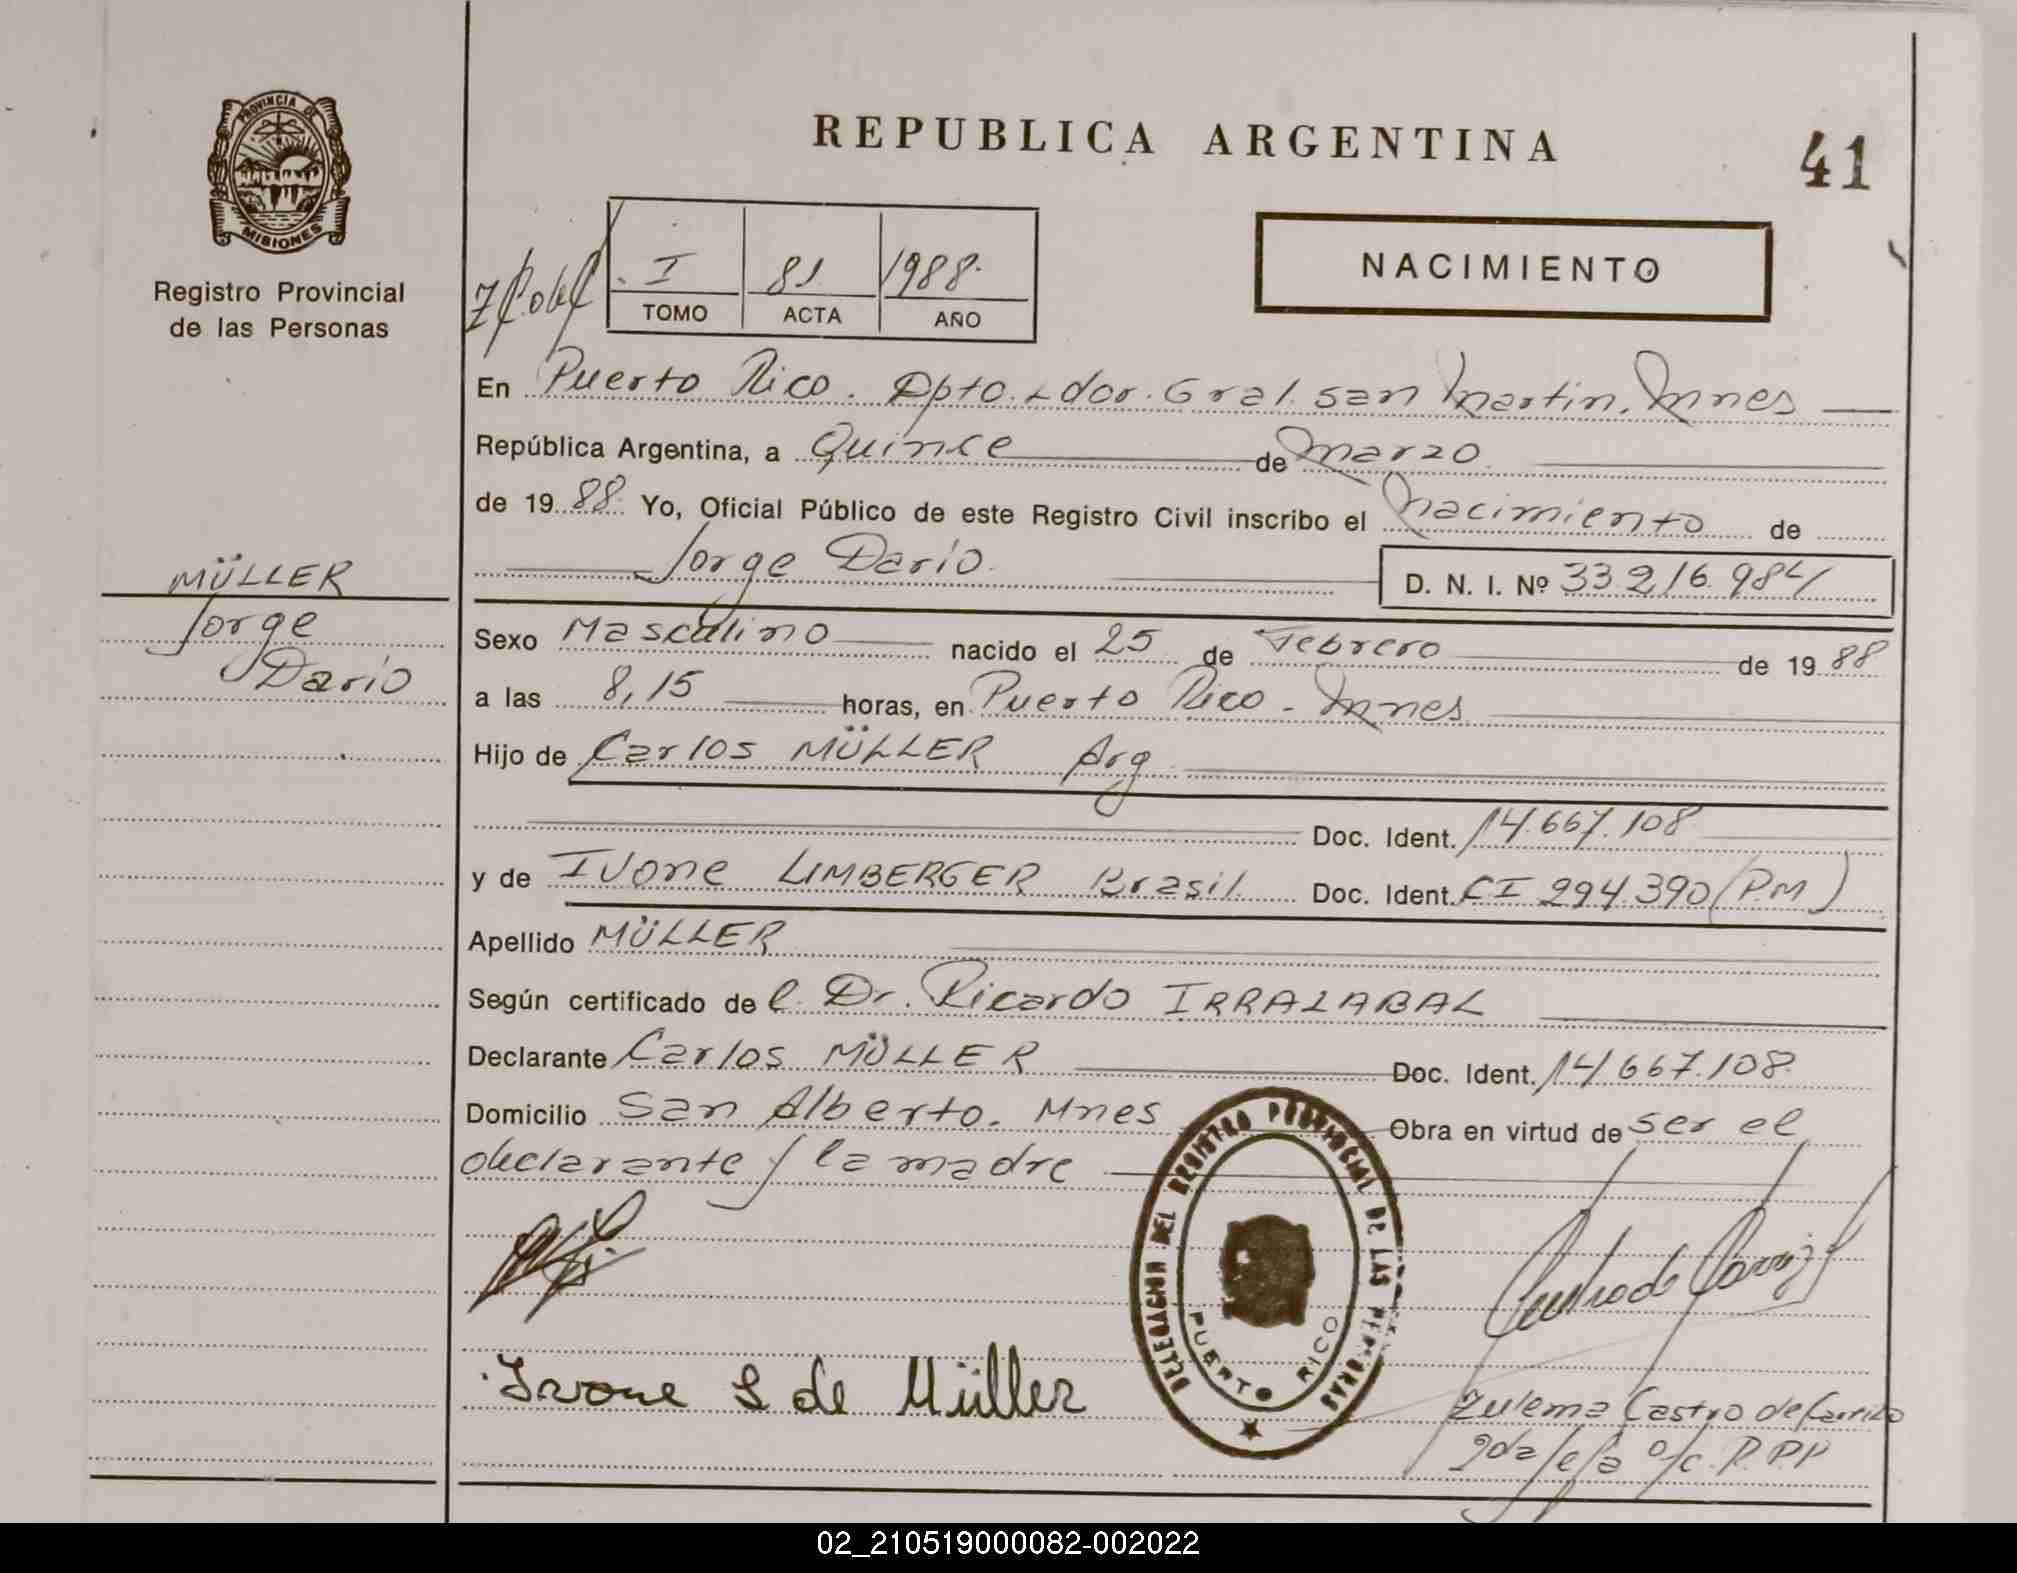 PROVINCIA DE
MISIONES
Registro Provincial
de las Personas
REPUBLICA ARGENTINA
41
I 81 1988
TOMO ACTA AÑO
NACIMIENTO
En Puerto Rico. Dpto. Ldor. Gral. San Martin. Mnes
República Argentina, a Quince de Marzo
de 1988 Yo, Oficial Público de este Registro Civil inscribo el nacimiento de
Jorge Darío D. N. I. Nº 33.216.984
MÜLLER
Jorge
Darío
Sexo Masculino nacido el 25 de Febrero de 1988
a las 8,15 horas, en Puerto Rico - Mnes
Hijo de Carlos MÜLLER Arg
Doc. Ident. 14.667.108
y de Ivone LIMBERGER Brasil. Doc. Ident. CI 294.390 (P.M)
Apellido MÜLLER
Según certificado de l. Dr. Ricardo IRRAZABAL
Declarante Carlos MÜLLER Doc. Ident. 14.667.108
Domicilio San Alberto. Mnes Obra en virtud de ser el
declarante y la madre
DELEGACION DEL REGISTRO PROVINCIAL DE LAS PERSONAS
PUERTO RICO
Ivone L de Müller
Zulema Castro de Carrizo